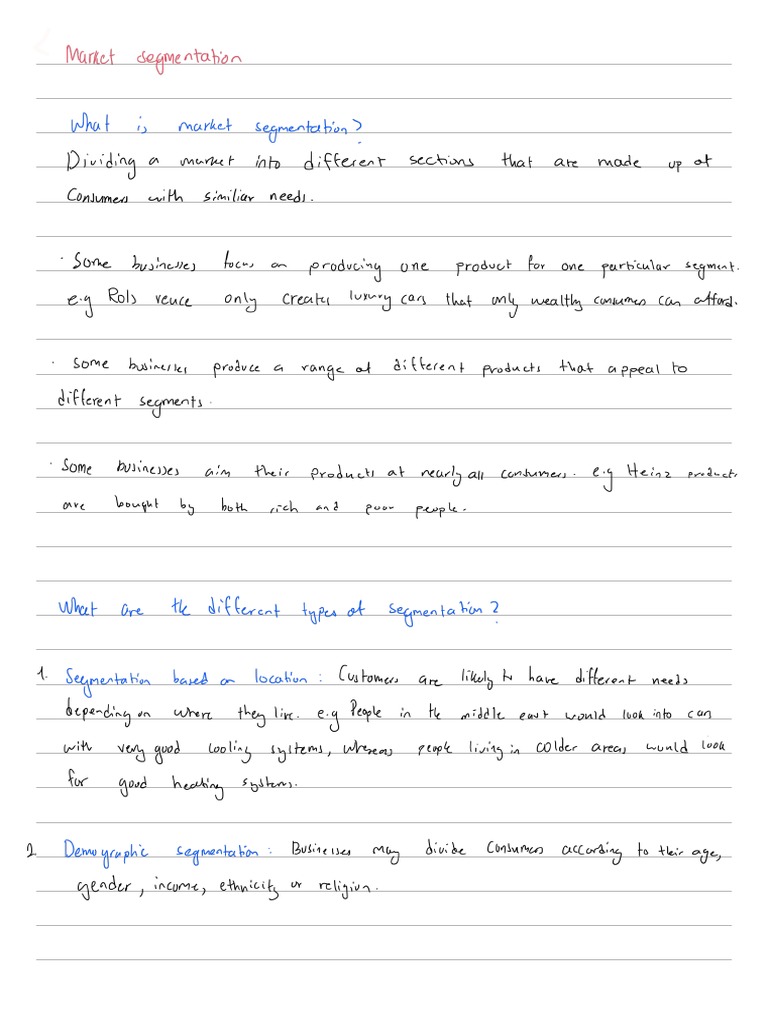 Market segmentation
What is market segmentation?
Dividing a market into different sections that are made up of
Consumers with similiar needs.
· Some businesses focus on producing one product for one particular segment.
e.g Rols reuce only creates luxury cars that only wealthy consumers can afford.
· Some businesses produce a range of different products that appeal to
different segments.
· Some businesses aim their products at nearly all consumers. e.g Heinz products
are bought by both rich and poor people.
What are the different types of segmentation?
1. Segmentation based on location: Customers are likely to have different needs
depending on where they live. e.g People in the middle east would look into cars
with very good cooling systems, whereas people living in colder areas would look
for good heating systems.
2 Demographic segmentation: Businesses may divide Consumers according to their age,
gender, income, ethnicity or religion.